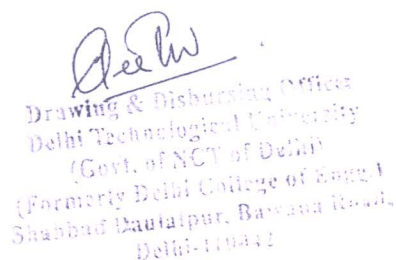 Drawing & Disbursing Officer
Delhi Technological University
(Govt. of NCT of Delhi)
(Formerly Delhi College of Engg.)
Shahbad Daulatpur, Bawana Road,
Delhi-110042